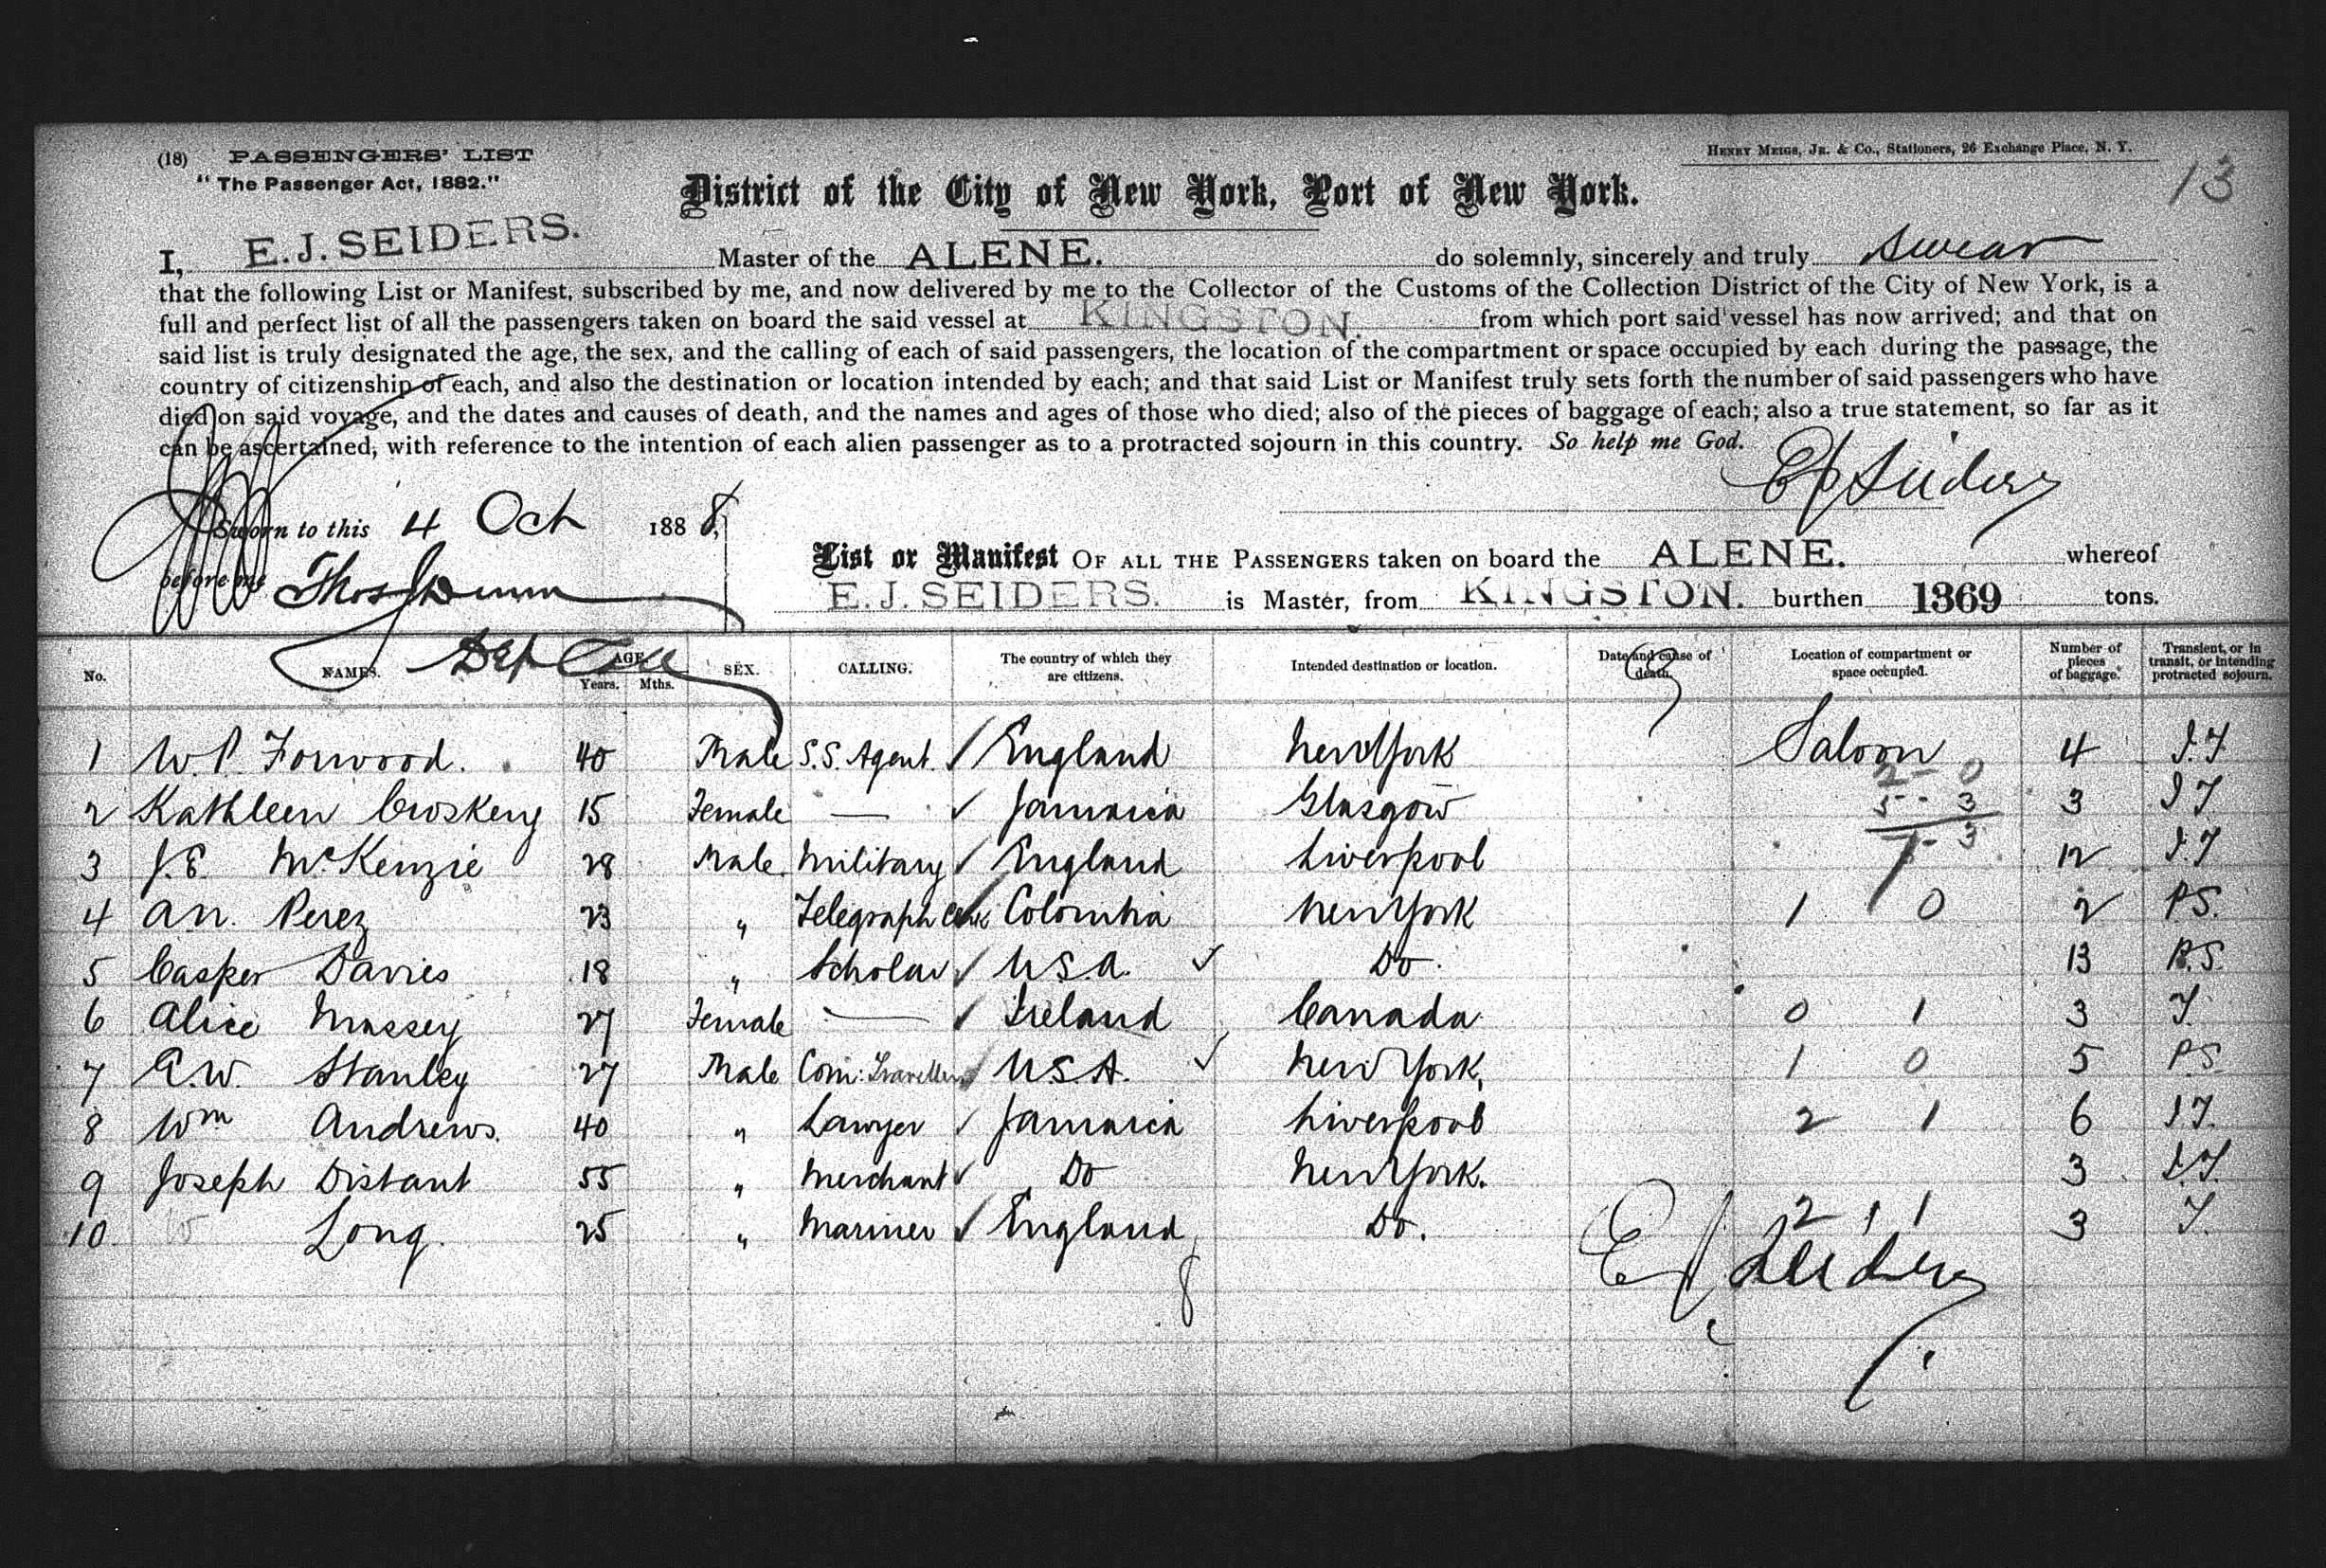 (18) PASSENGERS' LIST
"The Passenger Act, 1882."
HENRY MEIGS, JR. & Co., Stationers, 26 Exchange Place, N. Y.
13
District of the City of New York, Port of New York.
I, E.J. SEIDERS. Master of the ALENE. do solemnly, sincerely and truly swear
that the following List or Manifest, subscribed by me, and now delivered by me to the Collector of the Customs of the Collection District of the City of New York, is a
full and perfect list of all the passengers taken on board the said vessel at KINGSTON. from which port said vessel has now arrived; and that on
said list is truly designated the age, the sex, and the calling of each of said passengers, the location of the compartment or space occupied by each during the passage, the
country of citizenship of each, and also the destination or location intended by each; and that said List or Manifest truly sets forth the number of said passengers who have
died on said voyage, and the dates and causes of death, and the names and ages of those who died; also of the pieces of baggage of each; also a true statement, so far as it
can be ascertained, with reference to the intention of each alien passenger as to a protracted sojourn in this country. So help me God.
EJ Seiders
Sworn to this 4 Oct 1888,
before me Thos J Dunn
Dep Coll
List or Manifest OF ALL THE PASSENGERS taken on board the ALENE. whereof
E.J. SEIDERS. is Master, from KINGSTON. burthen 1369 tons.
No. NAMES. AGE Years. Mths. SEX. CALLING. The country of which they are citizens. Intended destination or location. Date and cause of death. Location of compartment or space occupied. Number of pieces of baggage. Transient, or in transit, or intending protracted sojourn.
1 W.P. Forwood. 40 Male S.S. Agent. England New York Saloon 4 I.T
2 Kathleen Croskery 15 Female — Jamaica Glasgow 3 I T
2 - 0
5 - 3
7 - 3
3 J.E. McKenzie 28 Male Military England Liverpool 12 I.T
4 A.N. Perez 23 " Telegraph Clerk Colombia New York 1 0 2 P.S.
5 Casper Davies 18 " Scholar U.S.A. Do. 13 P.S.
6 Alice Massey 27 Female — Ireland Canada 0 1 3 T.
7 A.W. Stanley 27 Male Com: Traveller U.S.A. New York, 1 0 5 P.S.
8 Wm Andrews. 40 " Lawyer Jamaica Liverpool 2 1 6 I.T.
9 Joseph Distant 55 " Merchant Do New York. 3 I.T.
10. W Long. 25 " Mariner England Do. 2 1 1 3 T.
8
EJ Seiders